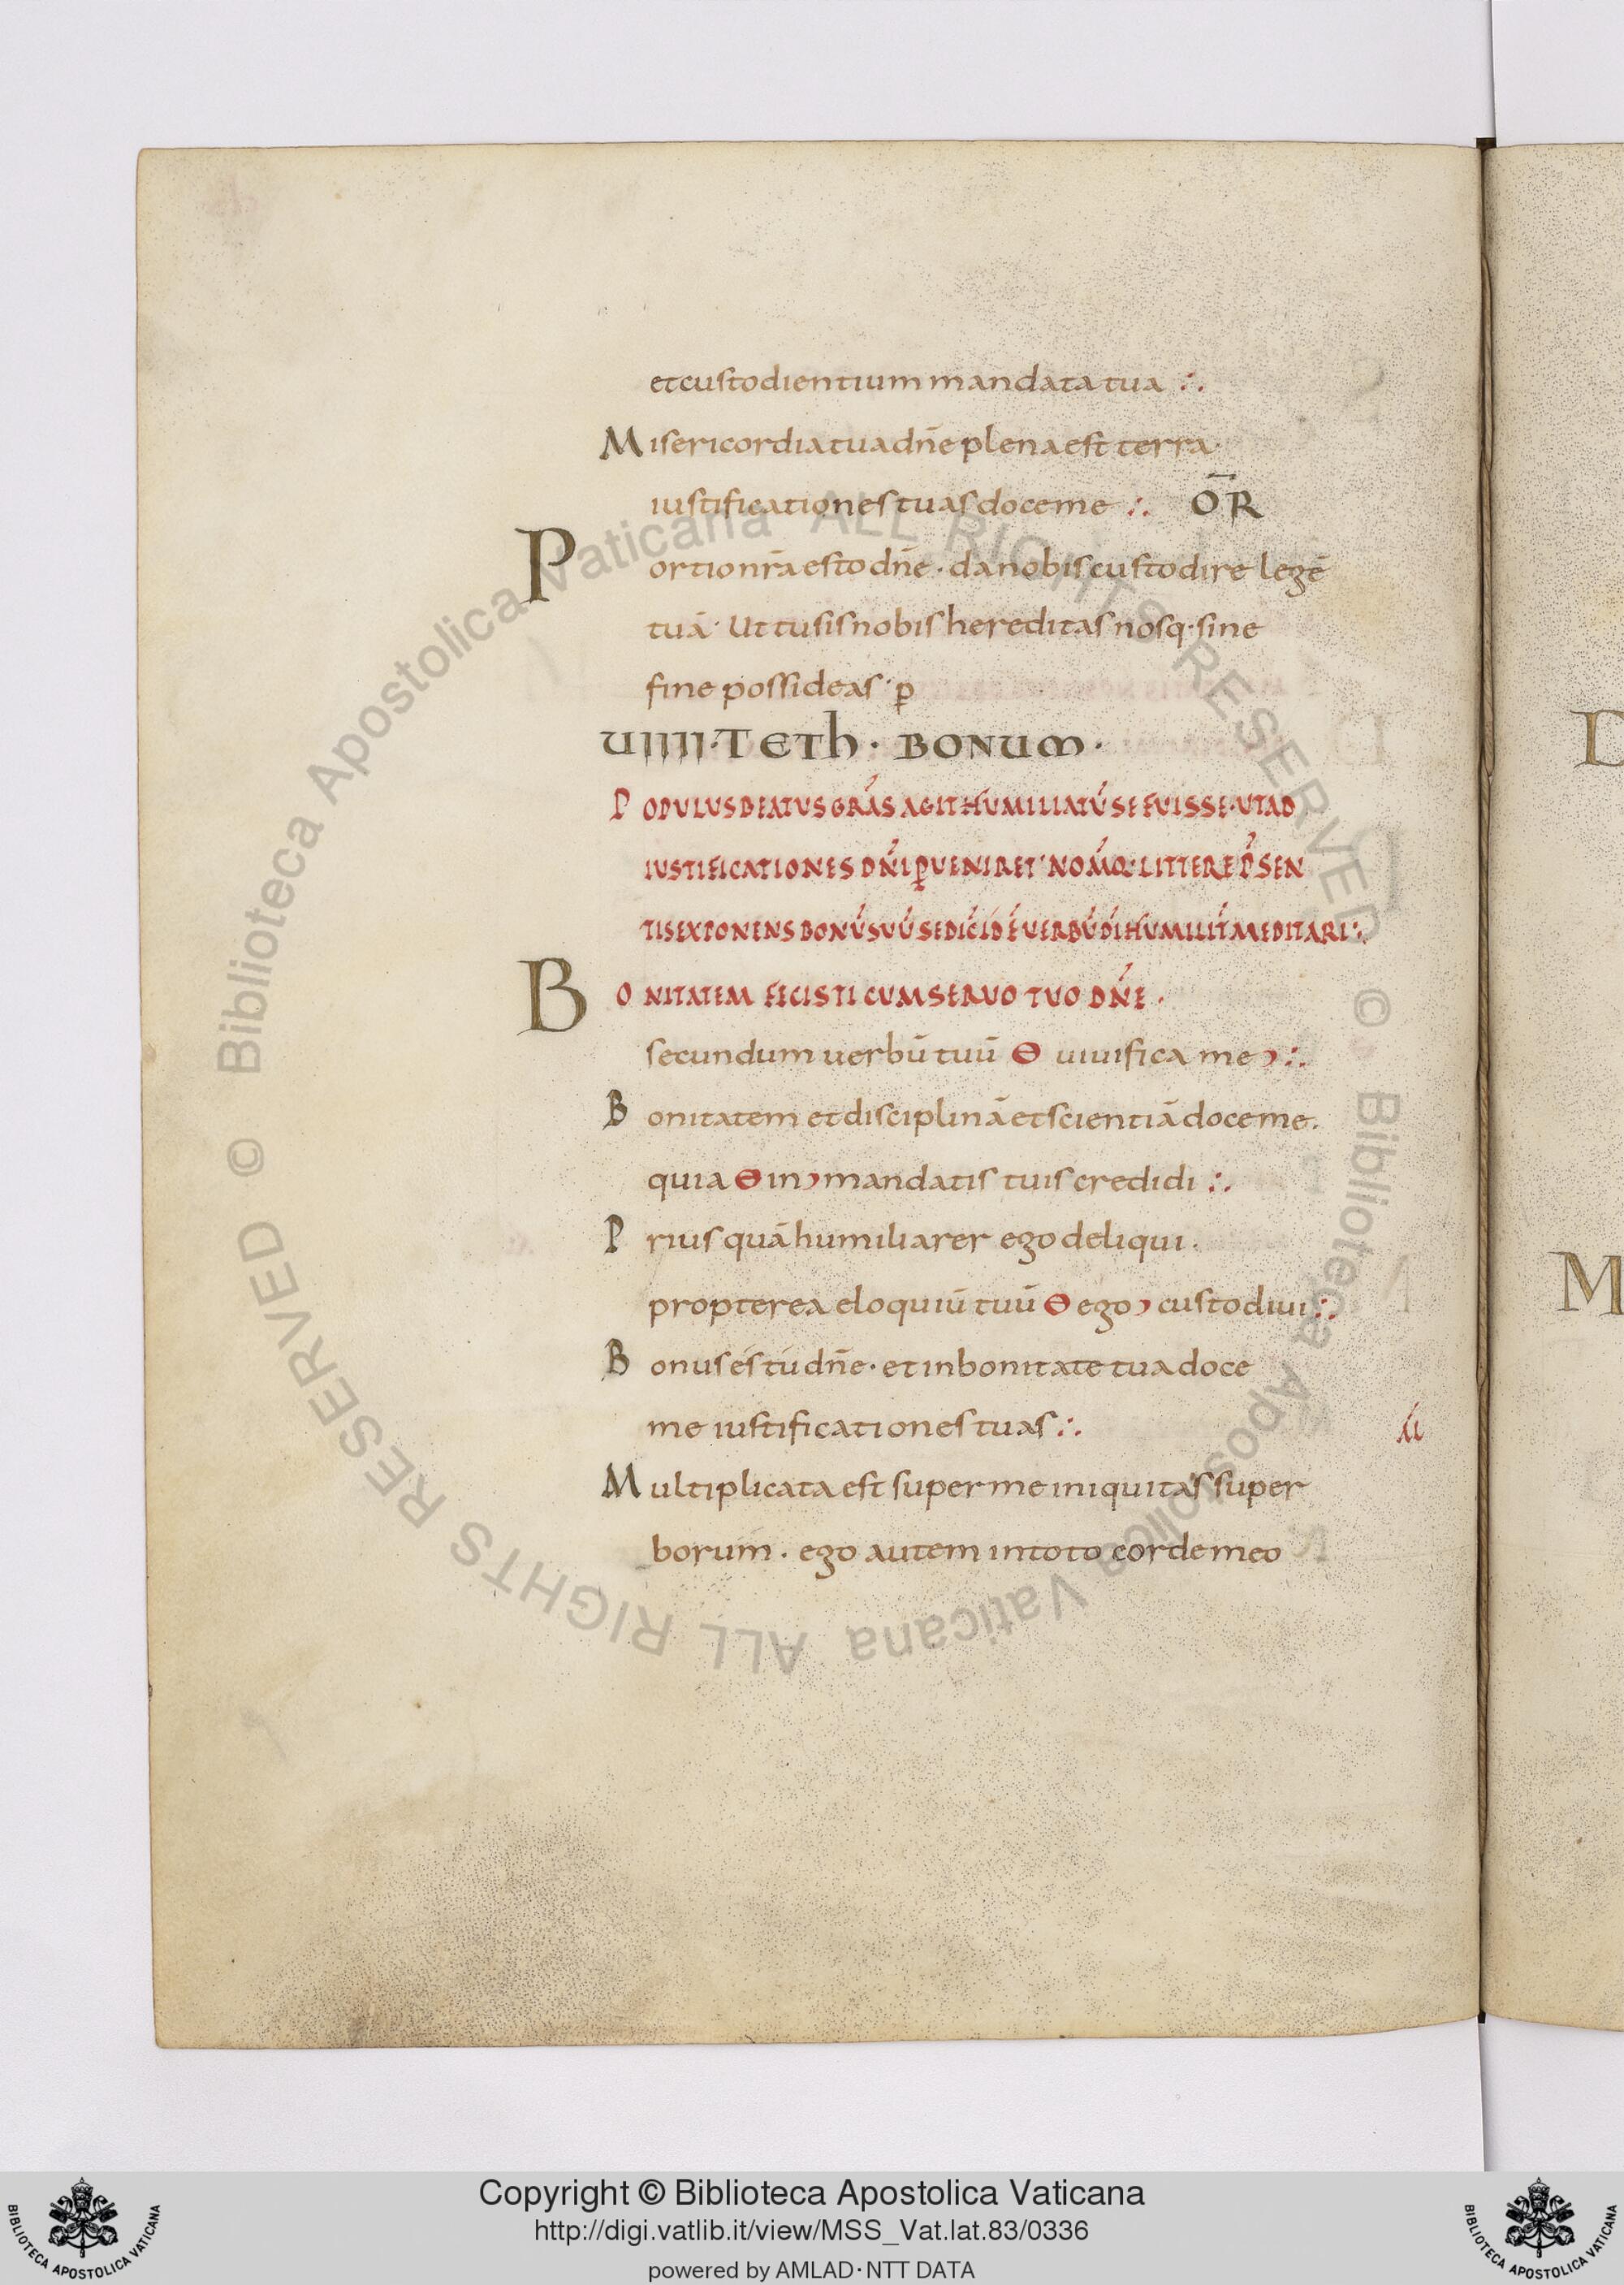 et custodientium mandata tua ∴
Misericordia tua dn̄e plena est terra·
iustificationes tuas doce me ∴ ŌR
Portio nr̄a esto dn̄e · da nobis custodire legē
tuā· Ut tu sis nobis hereditas nosq· sine
fine possideas· ꝑ
UIIII·TETh· BONUM·
POPULUS BEATUS GRÁS AGIT HUMILIATŪ SE FUISSE· UT AD
IUSTIFICATIONES DN̄I ꝑUENIRET· NOM̄Q: LITTERE P̄SEN
TIS EXPONENS BONŪ SUŪ SE DIC̄ ID Ē UERBŪ DĪ HUMILIT̄ MEDITARI ∴
BONITATEM FECISTI CUM SERUO TUO DN̄E ·
secundum uerbū tuū ⦵ uiuifica me ∴
Bonitatem et disciplinā et scientiā doce me.
quia ⦵ in mandatis tuis credidi ∴
Prius quā humiliarer ego deliqui ·
propterea eloquiū tuū ⦵ ego custodiui ∴
Bonus és tú dn̄e · et in bonitate tua doce
me iustificationes tuas ∴
Multiplicata est super me iniquitas super
borum · ego autem in toto corde meo
Biblioteca Apostolica Vaticana ALL RIGHTS RESERVED ©
Biblioteca Apostolica Vaticana ALL RIGHTS RESERVED ©
D
M
Copyright © Biblioteca Apostolica Vaticana
http://digi.vatlib.it/view/MSS_Vat.lat.83/0336
powered by AMLAD·NTT DATA
BIBLIOTECA APOSTOLICA VATICANA
BIBLIOTECA APOSTOLICA VATICANA